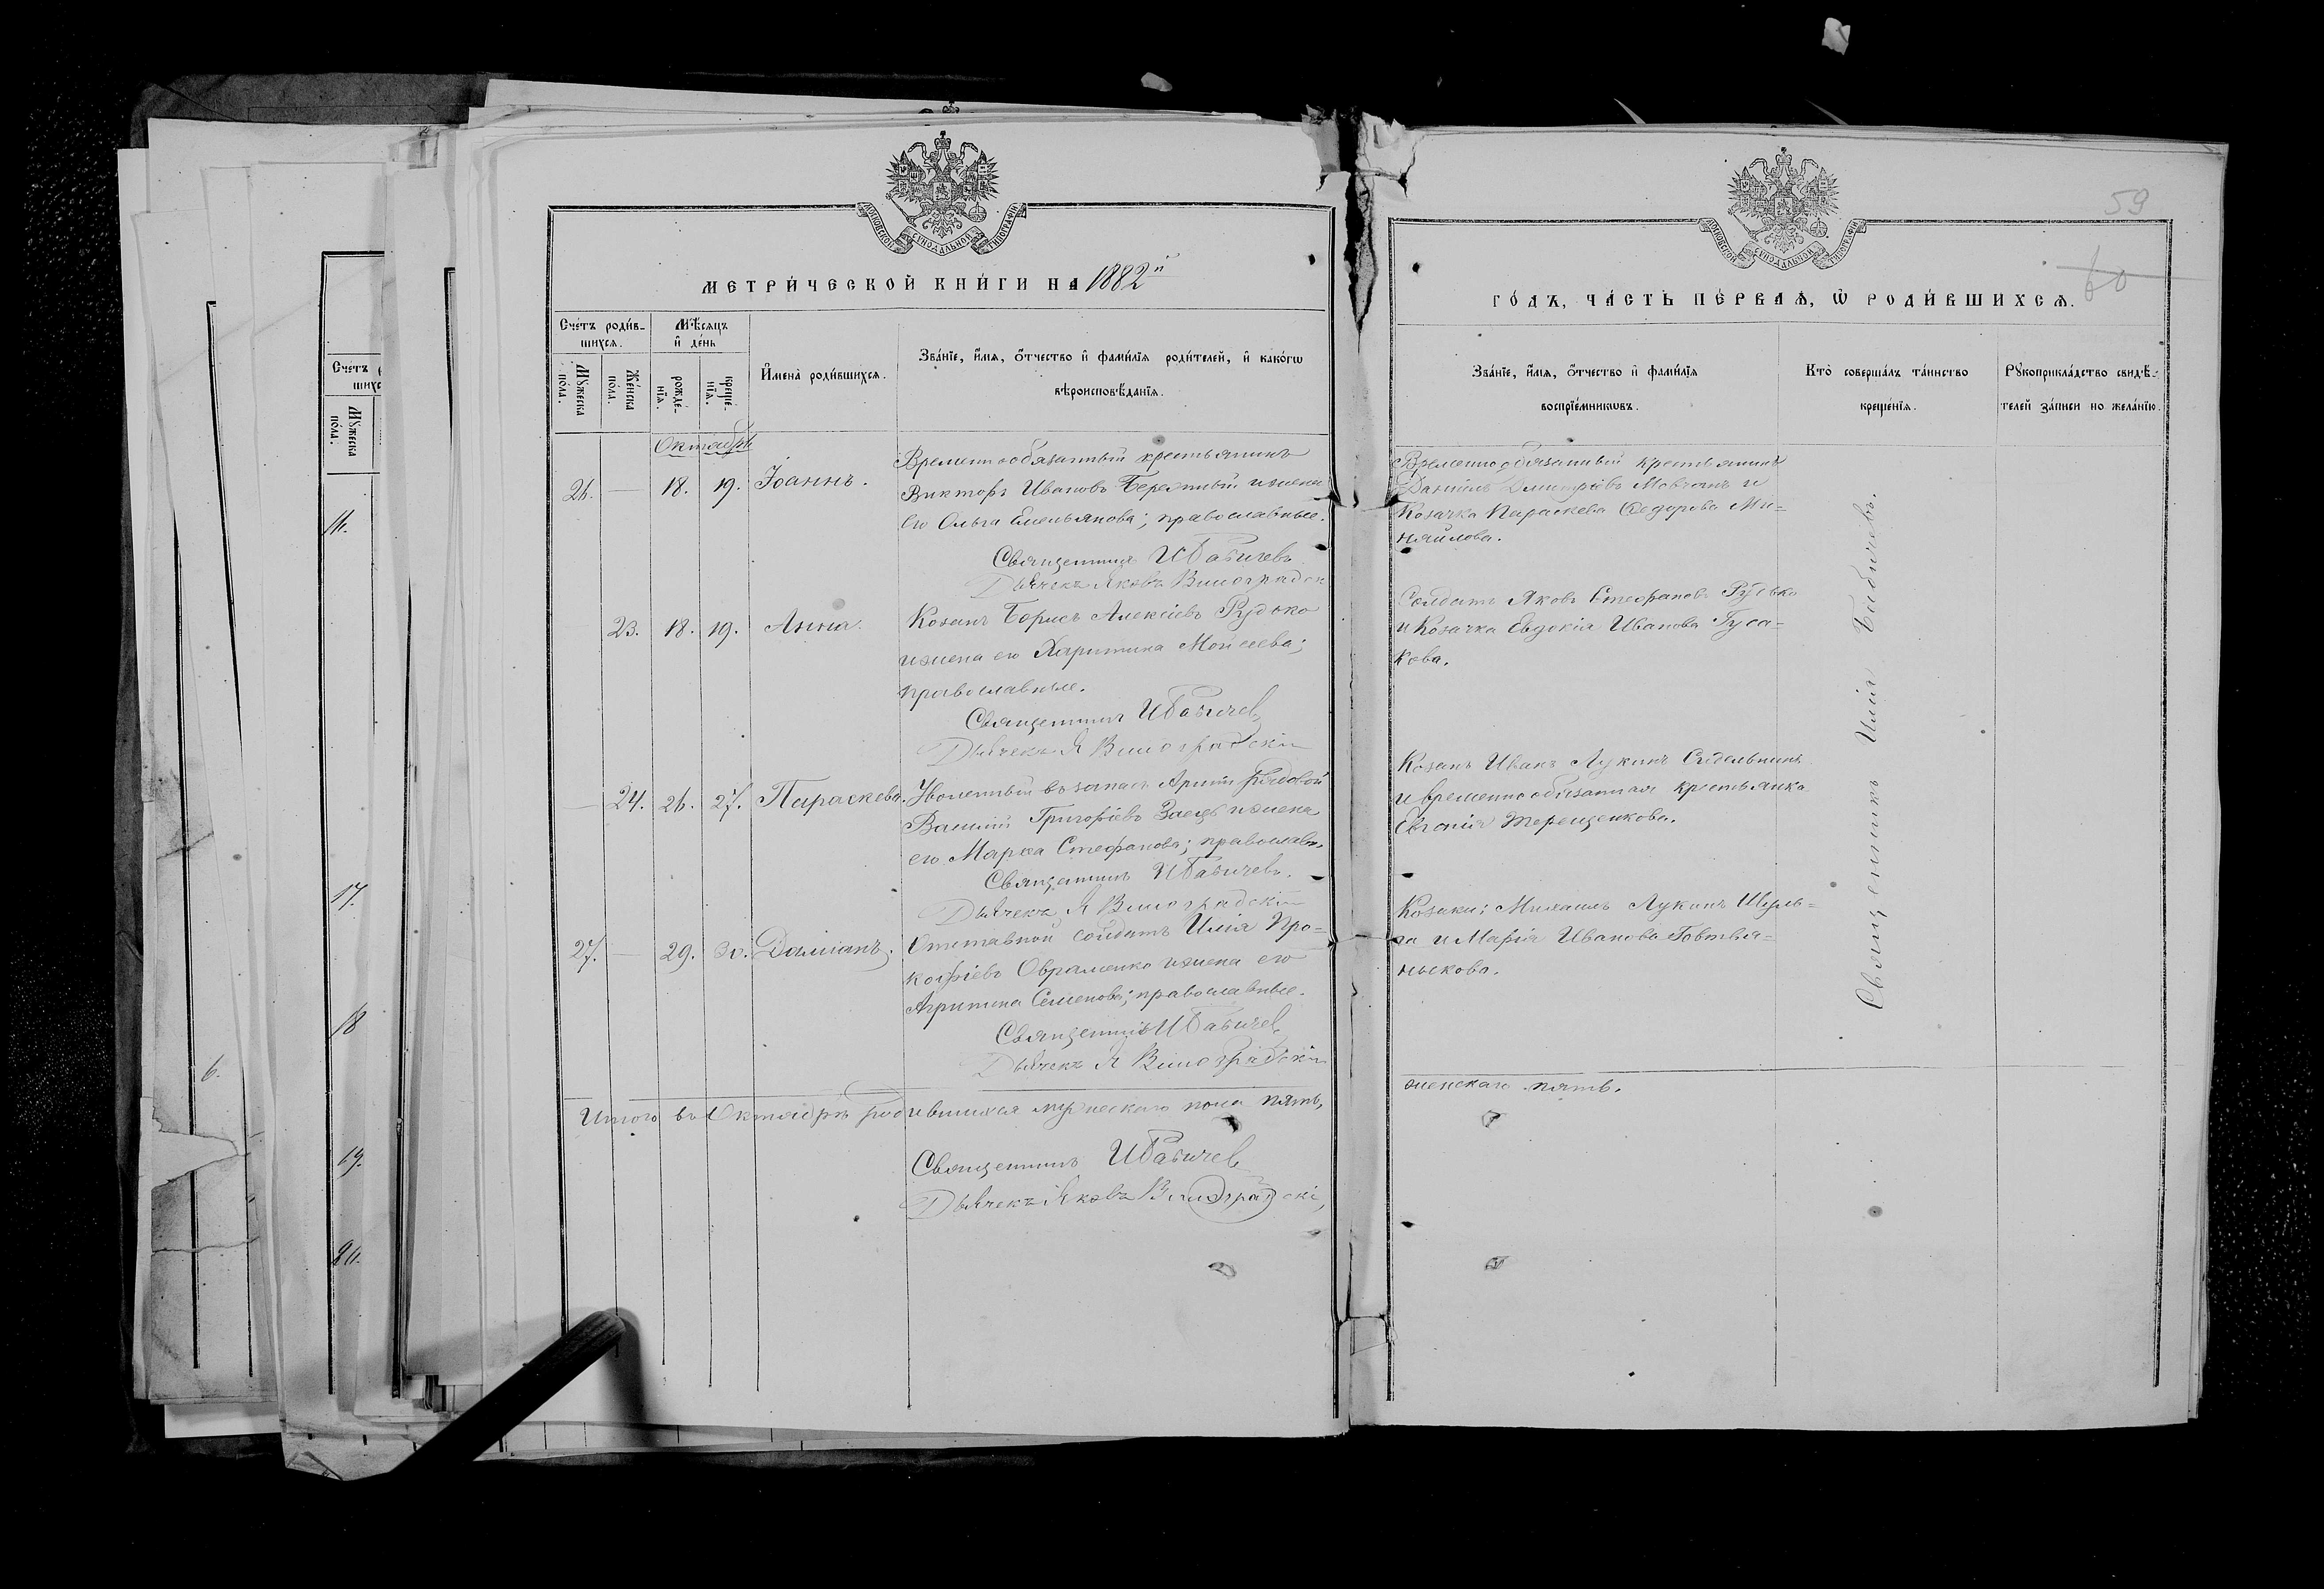 МОСКОВСКОЙ СѴНОДАЛЬНОЙ ТИПОГРАФІИ
МЕТРИ́ЧЕСКОЙ КНИ́ГИ НА 1882й
Сче́тъ роди́в-
шихсѧ.
Мꙋжеска
по́ла.
Же́нска
по́ла.
Мѣ́сѧцъ
и҆ де́нь
рожде́-
нїѧ.
креще́-
нїѧ.
И҆мена̀ роди́вшихсѧ.
Зва́нїе, и҆́мѧ, ѻ҆́тчество и҆ фами́лїѧ роди́телей, и҆ како́гѡ
вѣроисповѣ́данїѧ.
Октябрь
26. — 18. 19. Іоаннъ.
Временнообязанный крестьянинъ
Викторъ Ивановъ и жена
его Ольга Емельянова; православные.
Священникъ И Бабичевъ
Дьячекъ Яковъ Виноградск
23. 18. 19. Анна.
Козакъ Борисъ Алексіевъ Рудько
и жена его Харитина Мойсеева;
православные.
Священникъ И Бабичев
Дьячекъ Я Виноградскій
— 24. 26. 27. Параскева.
Уволенный въ запасъ Арміи рядовой
Василій Григоріевъ Заецъ и жена
его Марѳа Стефанова; православн.
Священникъ И Бабичевъ.
Дьячекъ Я Виноградскій
27. — 29. 30. Даміанъ.
Отставной солдатъ Илія Про-
кофіевъ Овраменко и жена его
Агрипина Семенова; православные.
Священникъ И Бабичев
Дьячекъ Я Виноградскій
Итого въ Октябрѣ родившихся мужескаго пола пять,
Священникъ И Бабичев
Дьячекъ Яковъ Виноградскі
59
60
МОСКОВСКОЙ СѴНОДАЛЬНОЙ ТИПОГРАФІИ
ГО́ДЪ, ЧА́СТЬ ПЕ́РВАѦ, Ѡ҆ РОДИ́ВШИХСѦ.
Зва́нїе, и҆́мѧ, ѻ҆́тчество и҆ фами́лїѧ
воспрїе́мникѡвъ.
Кто̀ соверша́лъ та́инство
креще́нїѧ.
Рꙋкоприкла́дство свидѣ́-
телей за́писи по жела́нїю.
Временнообязанный крестьянинъ
Даніилъ Димитріевъ Мовчанъ и
Козачка Параскева Ѳедорова Ми-
няйлова.
Солдатъ Яковъ Стефановъ Рудько
и Козачка Евдокія Иванова Гуса-
кова.
Козакъ Иванъ Лукинъ Сидельникъ
и временнообязанная крестьянка
Евгенія Терещенкова.
Козаки: Михаилъ Лукинъ Шуль-
га и Марія Иванова Говтвя-
ныкова.
Священникъ Илія Бабичевъ.
женскаго пять.
Сче́тъ
шихс
Мꙋжеска
по́ла.
16.
17.
18
19.
20.
6.